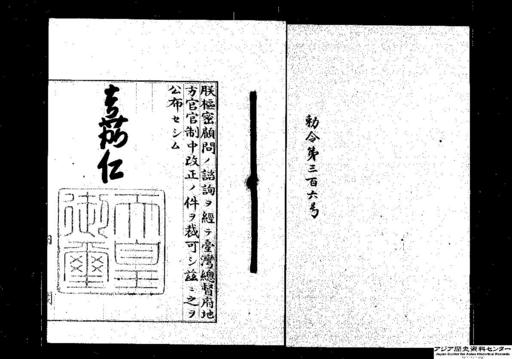 勅令第三百六号
朕樞密顧問ノ諮詢ヲ經テ臺灣總督府地
方官官制中改正ノ件ヲ裁可シ茲ニ之ヲ
公布セシム
嘉仁
天皇
御璽
アジア歴史資料センター
Japan Center for Asian Historical Records